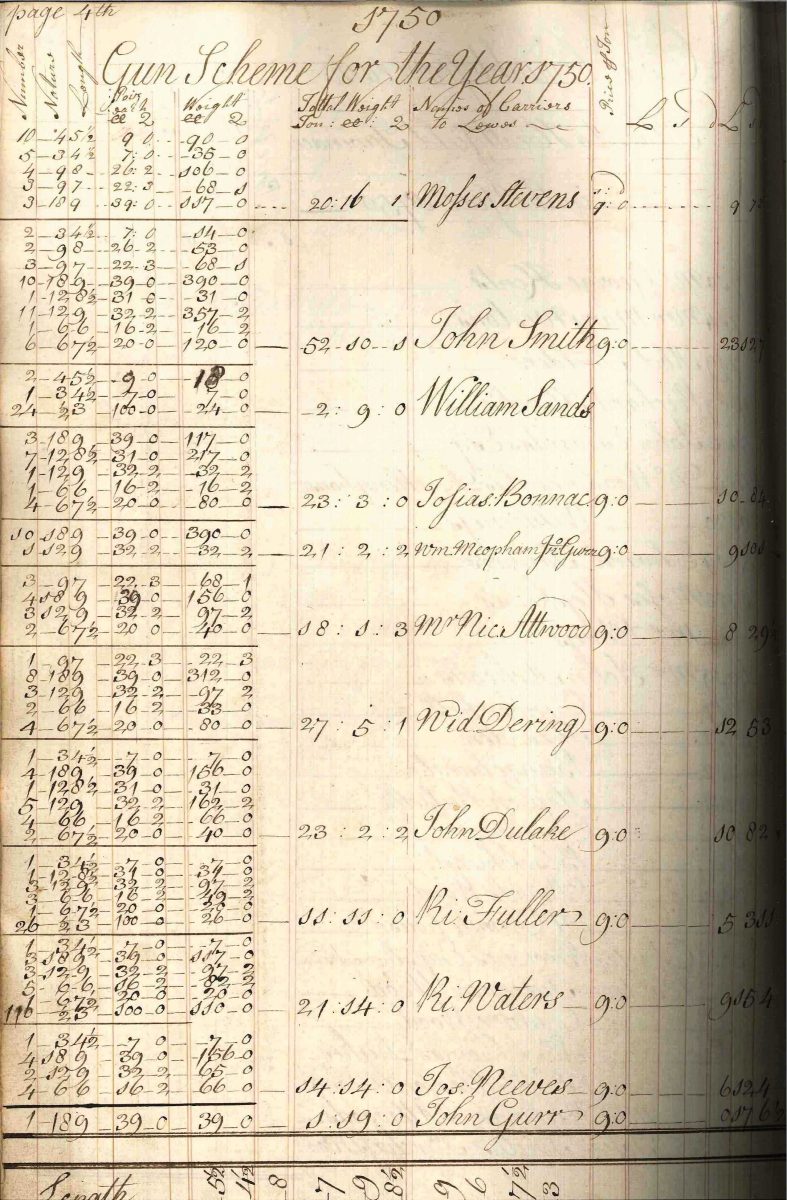 page 4th
1750
Gun Scheme for the Year 1750.
Number Nature Length Pair Weight Tottal Weight Names of Carriers Price of Ton £ S D £ S
cc 2 cc 2 Ton: cc: 2 to Lewes
10 - 4 5½ 9 0 - 90 - 0
5 - 3 4½ 7: 0 - 35 - 0
4 - 9 8 - 26: 2 - 106 - 0
3 - 9 7 - 22: 3 - 68 - 1
3 - 18 9 - 39: 0 - 117 - 0 20: 16 1 Mosses Stevens 9: 0
2 - 3 4½ 7: 0 - 14 - 0
2 - 9 8 - 26 - 2 - 53 - 0
3 - 9 7 - 22 - 3 - 68 - 1
10 - 18 9 - 39 - 0 - 390 - 0
1 - 12 8½ - 31 - 0 - 31 - 0
11 - 12 9 - 32 - 2 - 357 - 2
1 - 6 6 - 16 - 2 - 16 - 2
6 - 6 7½ - 20 - 0 - 120 - 0 - 52 - 10 - 1 John Smith 9: 0
2 - 4 5½ - 9 - 0 - 18 - 0
1 - 3 4½ - 7 - 0 - 7 - 0
24 - ½ 3 - 100 - 0 - 24 - 0 - 2: 9: 0 William Sands
3 - 18 9 - 39 - 0 - 117 - 0
7 - 12 8½ - 31 - 0 - 217 - 0
1 - 12 9 - 32 - 2 - 32 - 2
1 - 6 6 - 16 - 2 - 16 - 2
4 - 6 7½ - 20 - 0 - 80 - 0 - 23: 3: 0 Josias Bonnac 9: 0 10 8 4
10 18 9 - 39 - 0 - 390 - 0
1 12 9 - 32 - 2 - 32 - 2 - 21: 2: 2 Wm. Meopham Jno Gurr 9: 0
3 - 9 7 - 22 - 3 - 68 - 1
4 18 9 - 39 0 - 156 - 0
3 12 9 - 32 - 2 - 97 - 2
2 - 6 7½ - 20 - 0 - 40 - 0 - 18: 1: 3 Mr Nic. Attwood 9: 0
1 - 9 7 - 22 - 3 - 22 - 3
8 18 9 - 39 - 0 - 312 - 0
3 - 12 9 - 32 - 2 - 97 - 2
2 - 6 6 - 16 - 2 - 33 - 0
4 - 6 7½ - 20 - 0 - 80 - 0 - 27: 5: 1 Wid Dering 9: 0 12 5 3
1 - 3 4½ - 7 - 0 - 7 - 0
4 - 18 9 - 39 - 0 - 156 - 0
1 - 12 8½ - 31 - 0 - 31 - 0
5 - 12 9 - 32 - 2 - 162 - 2
4 - 6 6 - 16 - 2 - 66 - 0
2 - 6 7½ - 20 - 0 - 40 - 0 - 23: 2: 2 John Dulake 9: 0 10 8 2
1 - 3 4½ - 7 - 0 - 7 - 0
1 - 12 8½ - 31 - 0 - 34 - 0
3 - 12 9 - 32 - 2 - 97 - 2
3 - 6 6 - 16 - 2 - 49 - 2
1 - 6 7½ - 20 - 0 - 20 - 0
26 - ½ 3 - 100 - 0 - 26 - 0 - 11: 11: 0 Ri. Fuller 9: 0 5 3 11
1 - 3 4½ - 7 - 0 - 7 - 0
3 - 18 9 - 39 - 0 - 117 - 0
3 - 12 9 - 32 - 2 - 97 - 2
5 - 6 6 - 16 - 2 - 82 - 2
1 6 7½ - 20 - 0 - 20 - 0
½ 3 - 100 - 0 - 110 - 0 - 21: 14: 0 Ri. Waters 9: 0 9 15 4
1 - 3 4½ - 7 - 0 - 7 - 0
4 18 9 - 39 - 0 - 156 - 0
2 - 12 9 - 32 - 2 - 65 - 0
4 - 6 6 - 16 - 2 - 66 - 0 - 14: 14: 0 Jos. Neeves 9: 0 6 12 4
1 - 18 9 - 39 - 0 - 39 - 0 - 1: 19: 0 John Gurr 9: 0 0 17 6½
Length 5½ 4½ 8 7 9 8½ 9 6 7½ 3